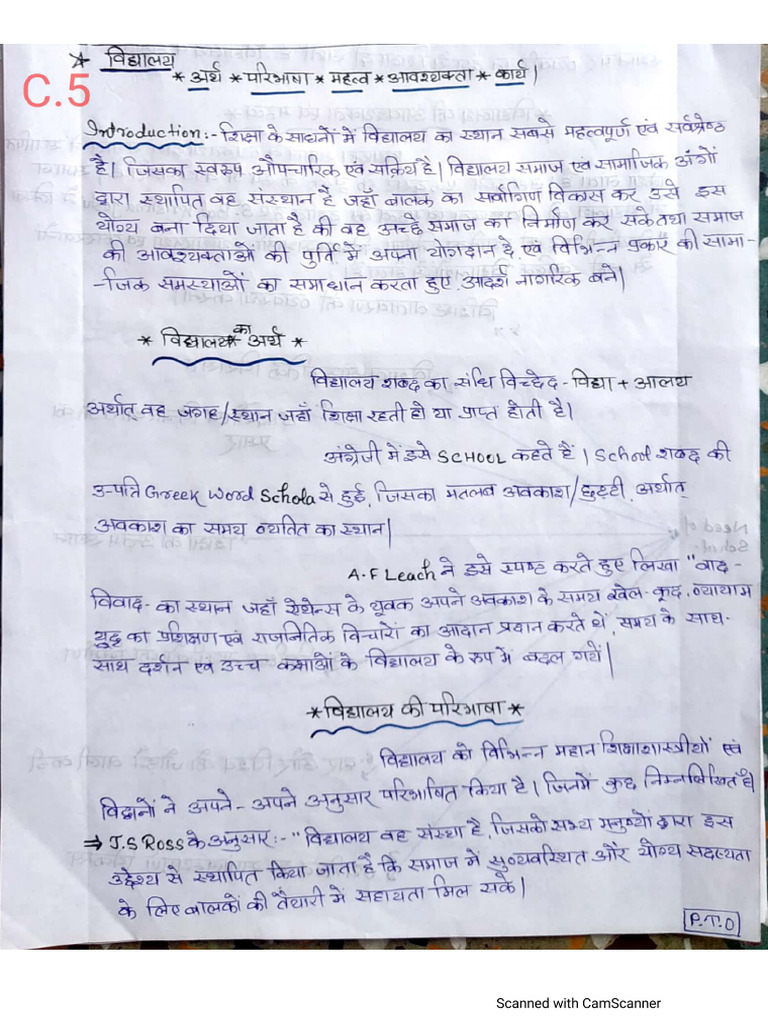 * विद्यालय
* अर्थ * परिभाषा * महत्व * आवश्यकता * कार्य।
C.5
Introduction:- शिक्षा के साधनों में विद्यालय का स्थान सबसे महत्वपूर्ण एवं सर्वश्रेष्ठ
है। जिसका स्वरूप औपचारिक एवं सक्रिय है। विद्यालय समाज एवं सामाजिक अंगों
द्वारा स्थापित वह संस्थान है जहाँ बालक का सर्वांगिण विकास कर उसे इस
योग्य बना दिया जाता है की वह अच्छे समाज का निर्माण कर सके तथा समाज
की आवश्यक्ताओं की पुर्ति में अपना योगदान दे एवं विभिन्न प्रकार की सामा-
-जिक समस्थाओं का समाधान करता हुए आदर्श नागरिक बने।
* विद्यालय का अर्थ *
विद्यालय शब्द का संधि विच्छेद - विद्या + आलय
अर्थात वह जगह/स्थान जहाँ शिक्षा रहती हो या प्राप्त होती है।
अंग्रेजी में इसे SCHOOL कहते हैं। School शब्द की
उ-पत्ति Greek Word Schola से हुई, जिसका मतलब अवकाश/छुट्टी अर्थात्
अवकाश का समय व्यतित का स्थान।
A.F Leach ने इसे स्पष्ट करते हुए लिखा "वाद-
विवाद- का स्थान जहाँ ऐथेन्स के युवक अपने अवकाश के समय खेल-कूद, व्यायाम
युद्ध का प्रशिक्षण एवं राजनितिक विचारों का आदान प्रदान करते थे, समय के साथ-
साथ दर्शन एवं उच्च कक्षाओं के विद्यालय के रूप में बदल गयें।
* विद्यालय की परिभाषा *
विद्यालय को विभिन्न महान शिक्षाशास्त्रीयों एवं
विद्वानों ने अपने- अपने अनुसार परिभाषित किया है। जिनमें कुछ निम्नलिखित है।
⇒ J.S Ross के अनुसार:- "विद्यालय वह संस्था है, जिसको सभ्य मनुष्यों द्वारा इस
उद्देश्य से स्थापित किया जाता है कि समाज में सुव्यवस्थित और योग्य सदस्यता
के लिए बालकों की तैयारी में सहायता मिल सके।
P.T.O
Scanned with CamScanner